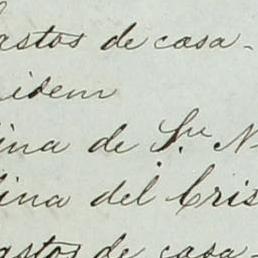 gastos de casa-
idem
ina de Sn N
ina del Cris
gastos de casa-